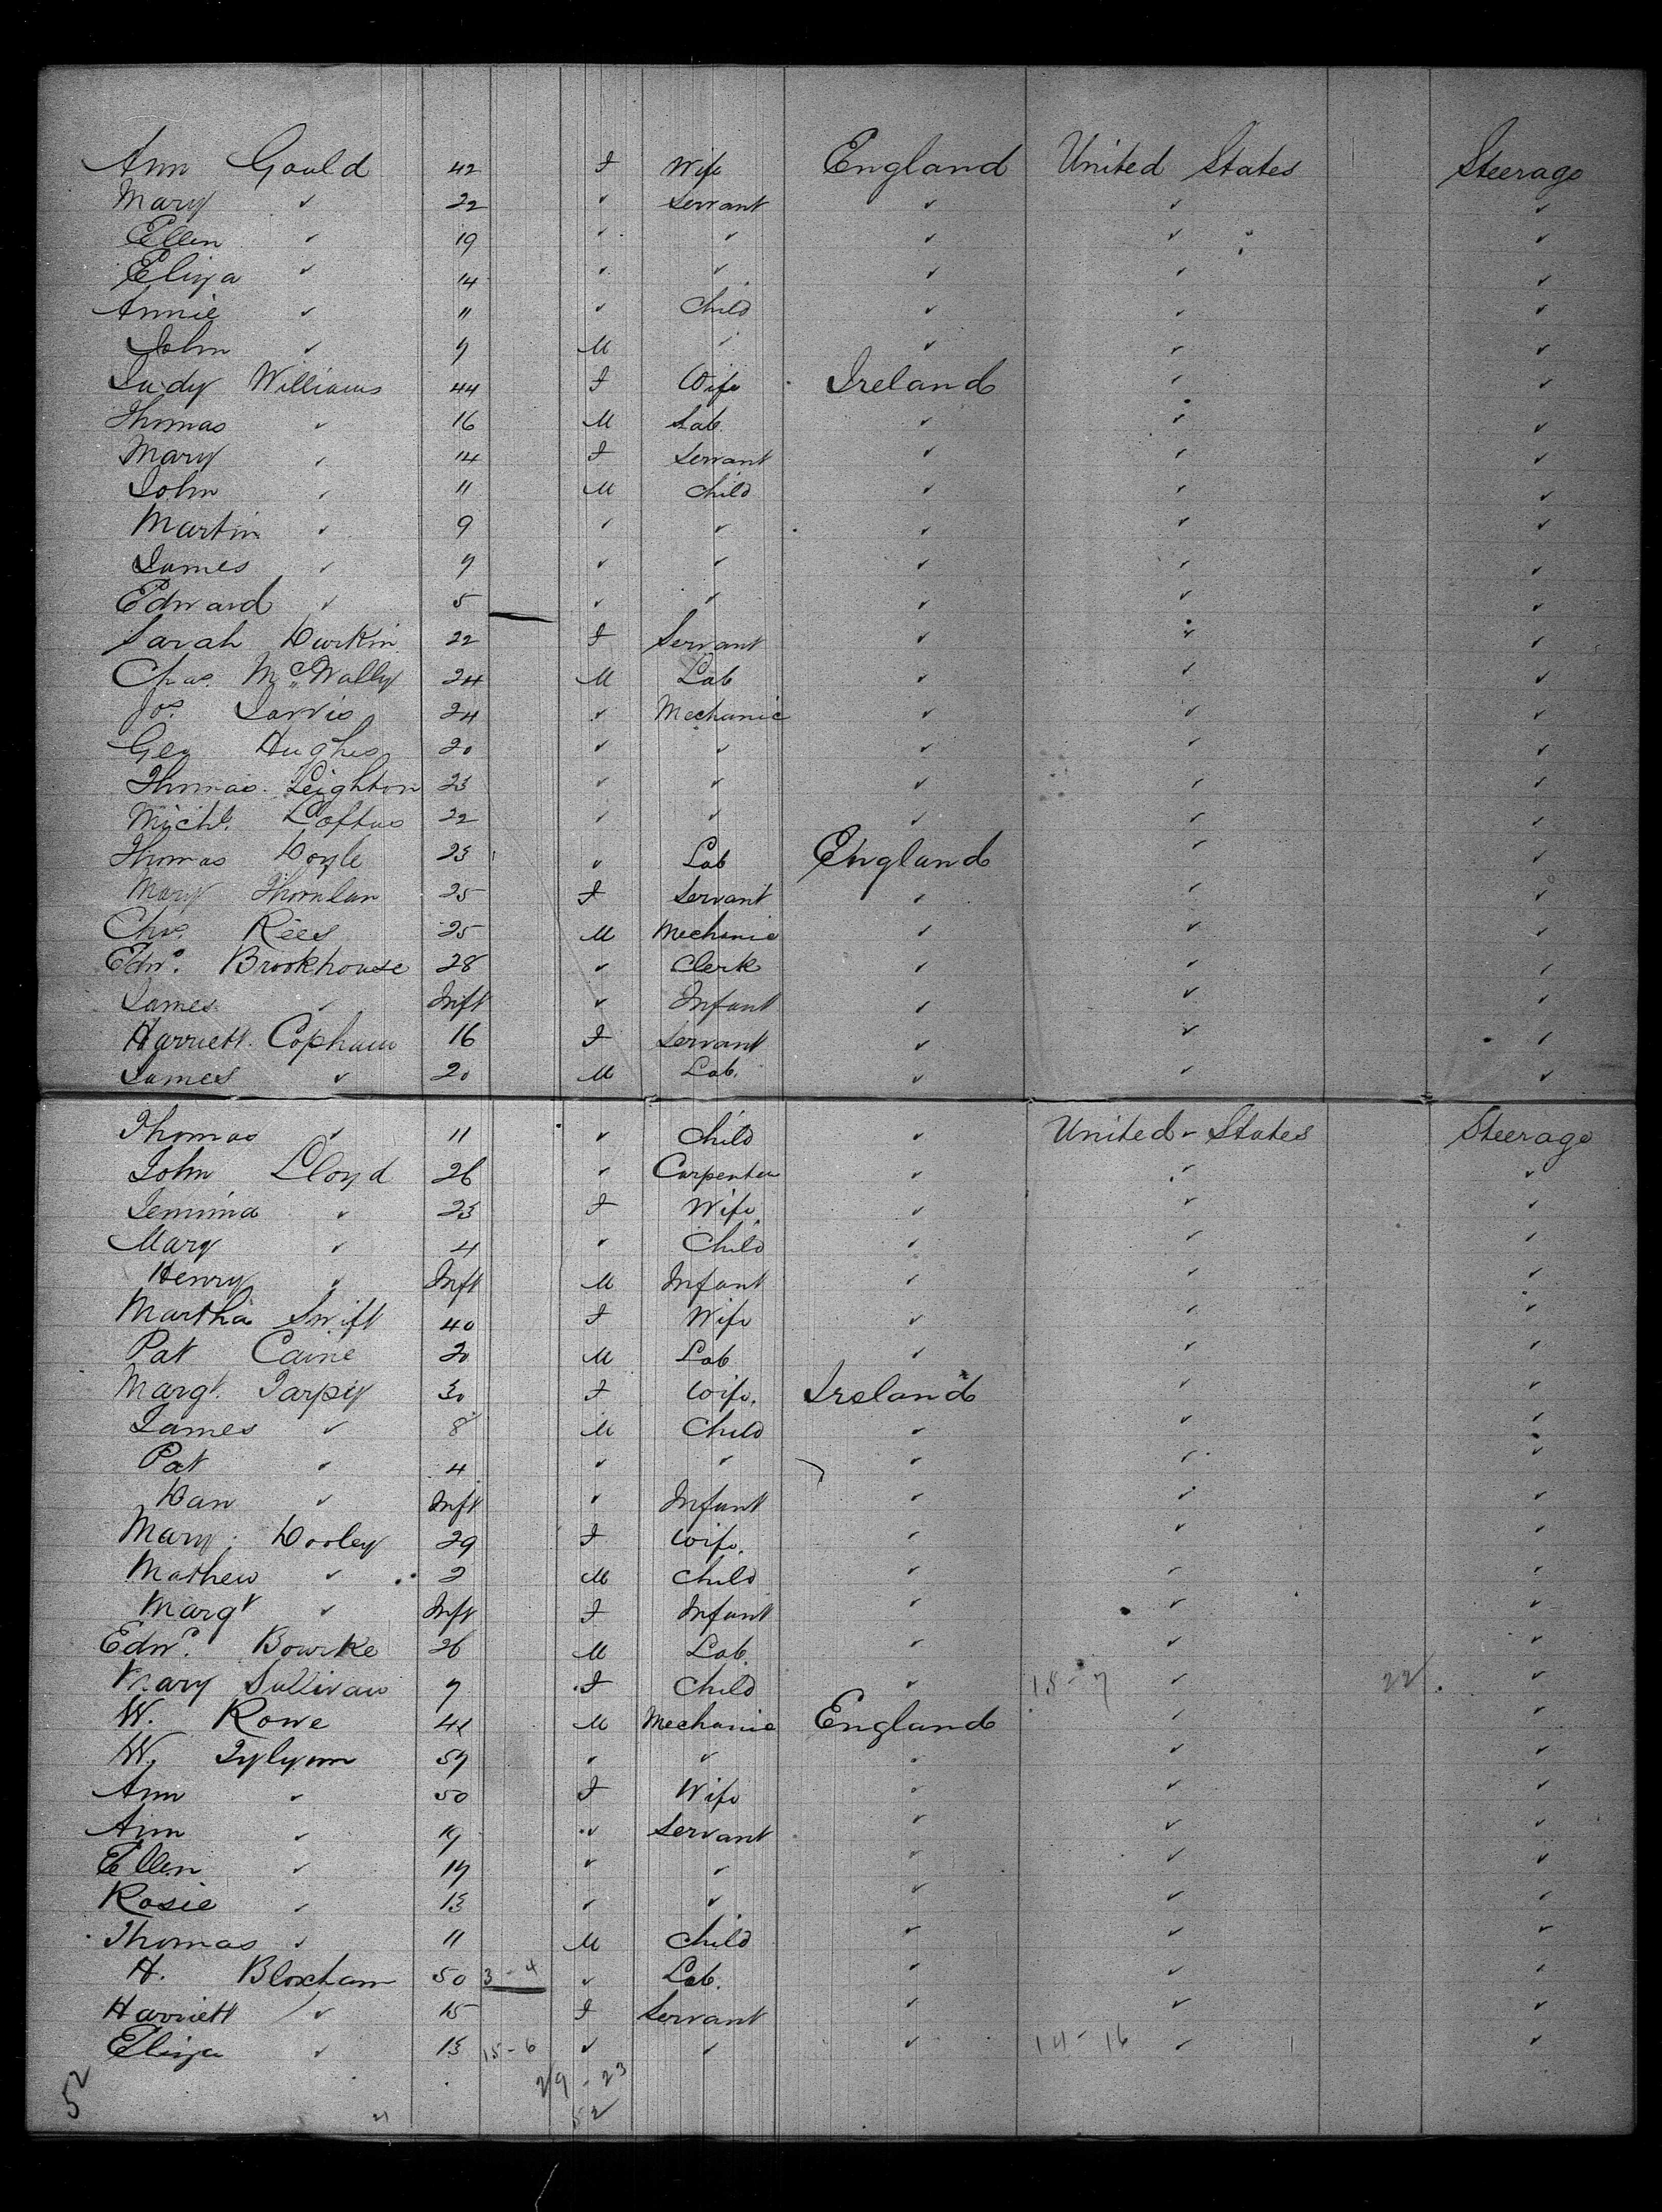 Ann Gould 42 F Wife England United States Steerage
Mary " 22 " Servant " " "
Ellen " 19 " " " " "
Eliza " 14 " " " " "
Annie " 11 " Child " " "
John " 7 M " " " "
Judy Williams 44 F Wife Ireland " "
Thomas " 16 M Lab " " "
Mary " 14 F Servant " " "
John " 11 M Child " " "
Martin " 9 " " " " "
James " 7 " " " " "
Edward " 5 " " " " "
Sarah Durkin 22 F Servant " " "
Chas. McNally 24 M Lab " " "
Jos. Jarvis 24 " Mechanic " " "
Geo Hughes 20 " " " " "
Thomas Leighton 23 " " " " "
Michl. Loftus 22 " " " " "
Thomas Doyle 23 " Lab England " "
Mary 25 F Servant " " "
Chas. Rees 25 M Mechanic " " "
Edwd. Brookhouse 28 " Clerk " " "
James " Inft " Infant " " "
Harriett Copham 16 F Servant " " "
James " 20 M Lab. " " "
Thomas " 11 " Child " United States Steerage
John Lloyd 26 " Carpenter " " "
Jemima " 23 F Wife " " "
Mary " 4 " Child " " "
Henry " Inft M Infant " " "
Martha Swift 40 F Wife " " "
Pat Caine 20 M Lab " " "
Margt. Tarpey 30 F Wife. Ireland " "
James " 8 M Child " " "
Pat " 4 " " " " "
Dan " Inft " Infant " " "
Mary Dooley 29 F Wife. " " "
Mathew " 2 M Child " " "
Margt " Inft F Infant " " "
Edwd. Bourke 26 M Lab. " " "
Mary Sullivan 7 F Child " 18-7 " 22 "
W. Rowe 42 M Mechanic England " "
W. 57 " " " " "
Ann " 50 F Wife " " "
Ann " 19 " Servant " " "
Ellen " 17 " " " " "
Rosie " 13 " " " " "
Thomas " 11 M Child " " "
H. Bloxham 50 3-4 " Lab. " " "
Harriett " 15 F Servant " " "
Eliza " 13 15-6 " " " 14-16 " "
29-23
52 52